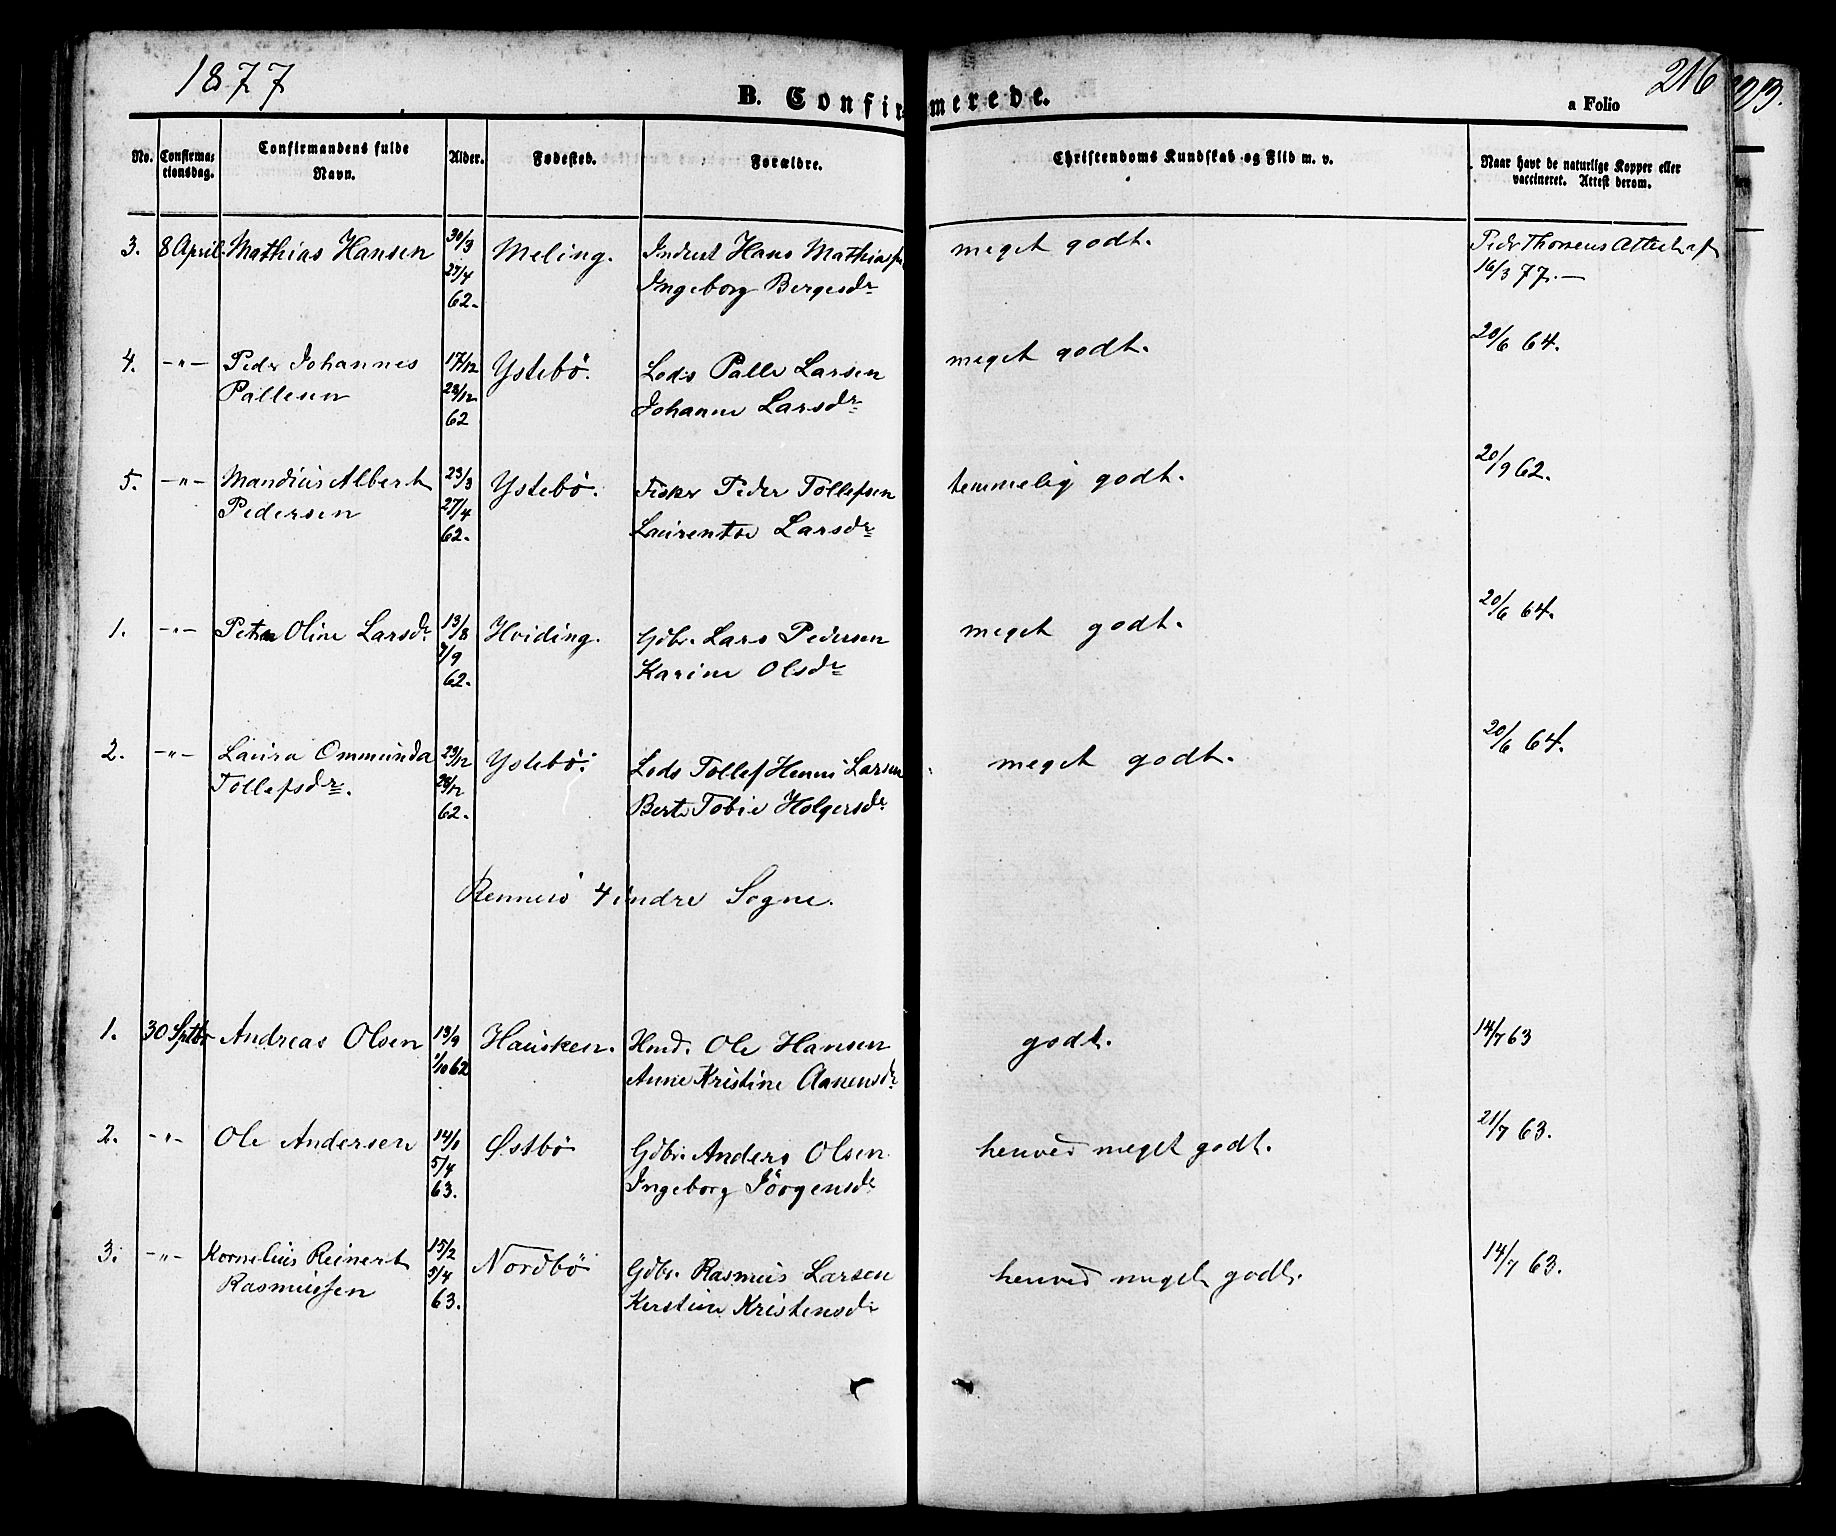 1877
B. Confirmerede.
a Folio 216
No. Confirmationsdag. Confirmandens fulde Navn. Alder. Fødested. Forældre. Christendoms Kundskab og Flid m. v. Naar havt de naturlige Kopper eller vaccineret. Attest derom.
3. 8 April. Mathias Hansen 30/3 Meling. Inderst Hans Mathias meget godt. Peder Attest af
27/4 Ingeborg Bergesdr 16/3 77. —
62.
4. -"- Peder Johannes 17/12 Ystebö. Lods Palle Larsen meget godt. 20/6 64.
Pallesen 28/12 Johanne Larsdr
62
5. -"- Mandius Albert 23/3 Ystebö. Fisker Peder Tollefsen temmelig godt. 20/9 62.
Pedersen 27/4 Laurentse Larsdr
62.
1. -"- Petra Oline Larsdr 13/8 Hviding. Gdbr. Lars Pedersen meget godt. 20/6 64.
/9 Karine Olsdr
62.
2. -"- Laura Ommunda 23/12 Ystebö. Lods Tollef Henrik Larsen meget godt. 20/6 64.
Tollefsdr. 28/12 Berte Tobie Holgersdr
62.
Rennesö 4 indre Sogne.
1. 30 Septbr Andreas Olsen 13/9 Hausken. Hmd. Ole Hansen godt. 14/7 63
1/10 62 Anne Kristine Aanensdr
2. -"- Ole Andersen 14/1 Østbö Gdbr. Anders Olsen henved meget godt. 21/7 63.
5/4 Ingeborg Jörgensdr
63.
3. -"- Kornelius Reinert 15/2 Nordbö Gdbr. Rasmus Larsen henved meget godt. 14/7 63.
Rasmussen 5/4 Kerstine Kristensdr
63.